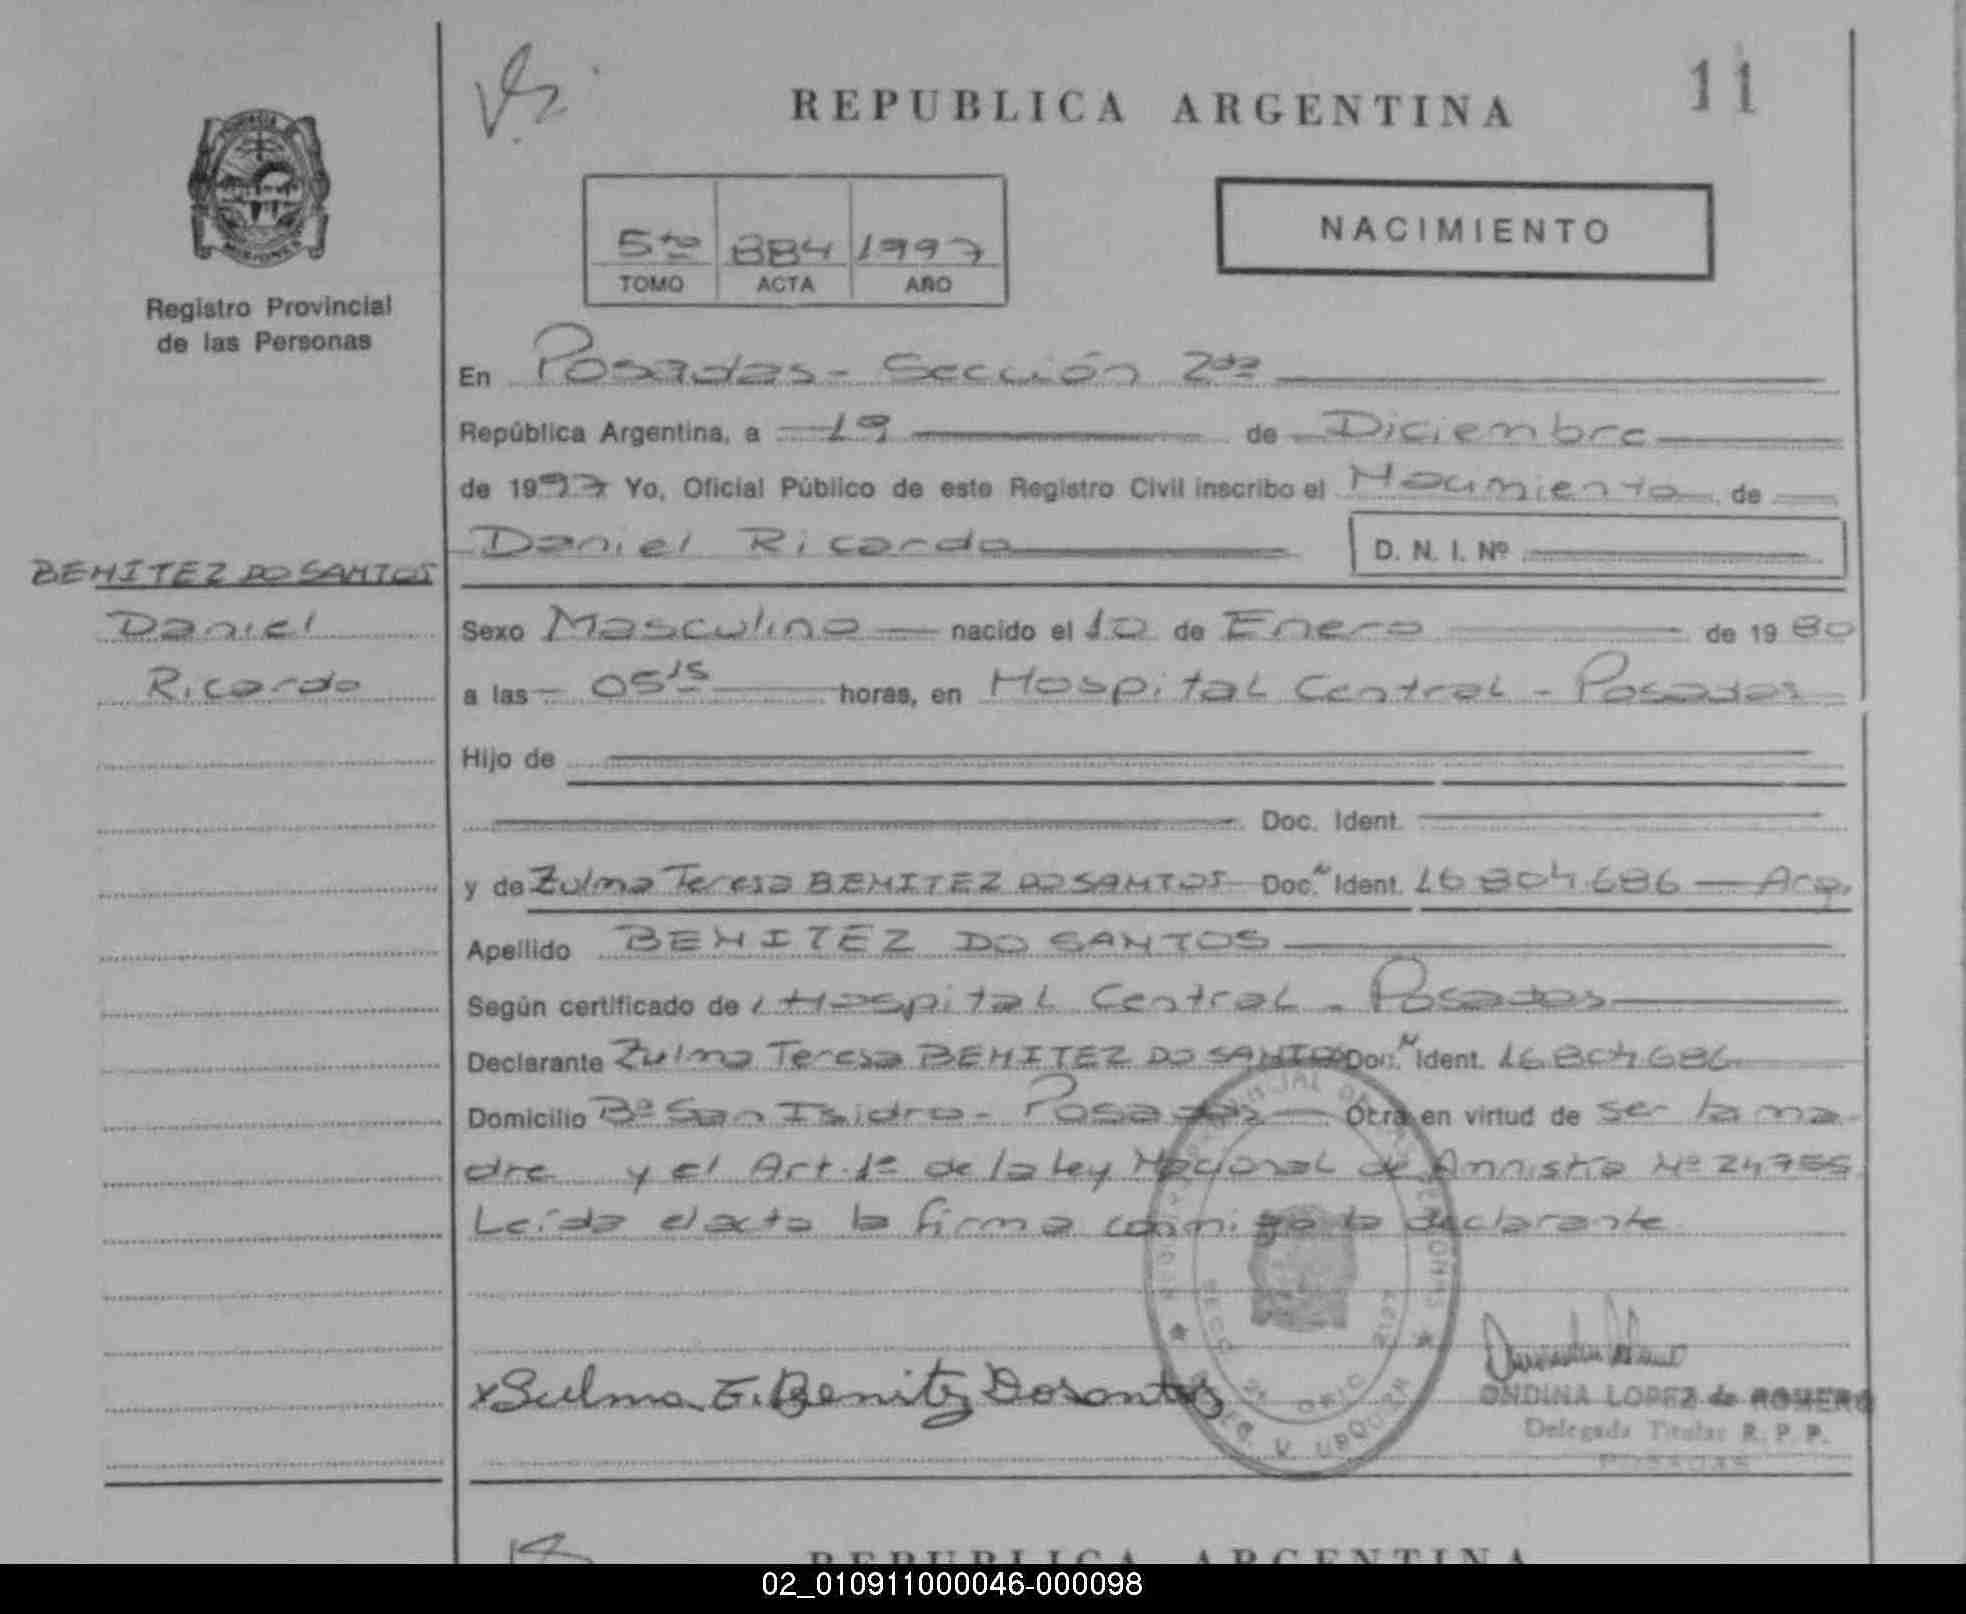 REPUBLICA ARGENTINA
11
5to 884 1997
TOMO ACTA AÑO
NACIMIENTO
Registro Provincial
de las Personas
En Posadas - Sección 2da
República Argentina, a 19 de Diciembre
de 1997 Yo, Oficial Público de este Registro Civil inscribo el Nacimiento de
Daniel Ricardo D. N. I. Nº
BENITEZ DO SANTOS
Daniel
Ricardo
Sexo Masculino nacido el 10 de Enero de 1980
a las 05 15 horas, en Hospital Central - Posadas
Hijo de
Doc. Ident.
y de Zulma Teresa BENITEZ DO SANTOS Doc. N Ident. 16 804 686 Arg.
Apellido BENITEZ DO SANTOS
Según certificado de Hospital Central - Posadas
Declarante Zulma Teresa BENITEZ DO SANTOS Doc. N Ident. 16 804 686
Domicilio Bº San Isidro - Posadas Otra en virtud de ser la ma
dre y el Art. 1º de la Ley Nacional de Amnistía Nº 24755
Leída el acta la firma conmigo la declarante
x Sulma T. Benitez Dosantos
ONDINA LOPEZ de ROMERO
Delegada Titular R. P. P.
POSADAS
REPUBLICA ARGENTINA
02_010911000046-000098